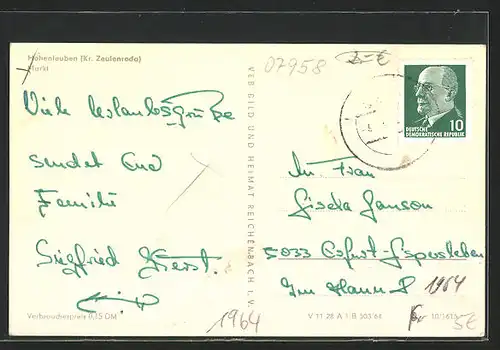 Hohenleuben (Kr. Zeulenroda)
Markt
07958
Viele Urlaubsgrüße
sendet Euch
Familie
Siegfried
Verbraucherpreis 0,15 DM
1964
VEB BILD UND HEIMAT REICHENBACH I. V.
10
DEUTSCHE
DEMOKRATISCHE REPUBLIK
Frau
Gisela Janson
Erfurt-Gispersleben
1964
V 11 28 A 1 B 503/64
5€